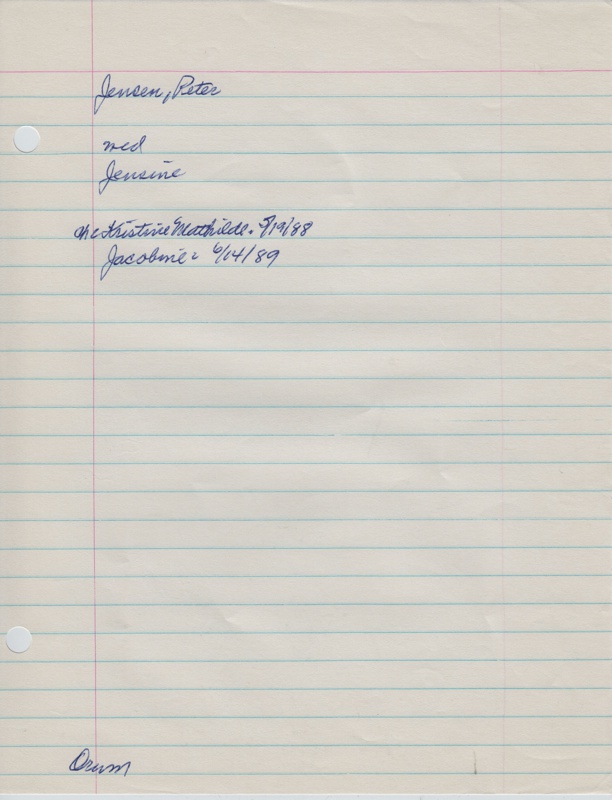 Jensen, Peter
med
Jensine
ch: Kristine Mathilde. 5/19/88
Jacobine: 6/14/89
Orum